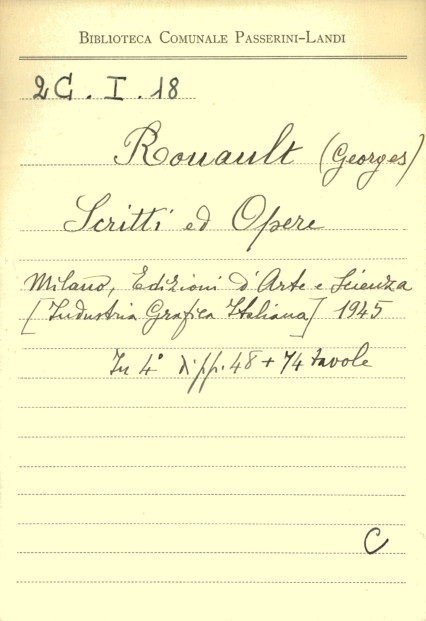 BIBLIOTECA COMUNALE PASSERINI-LANDI
2G. I. 18
Rouault (Georges)
Scritti ed Opere
Milano, Edizioni d'Arte e Scienza
[Industria Grafica Italiana] 1945
In 4° di pp. 48 + 74 tavole
C